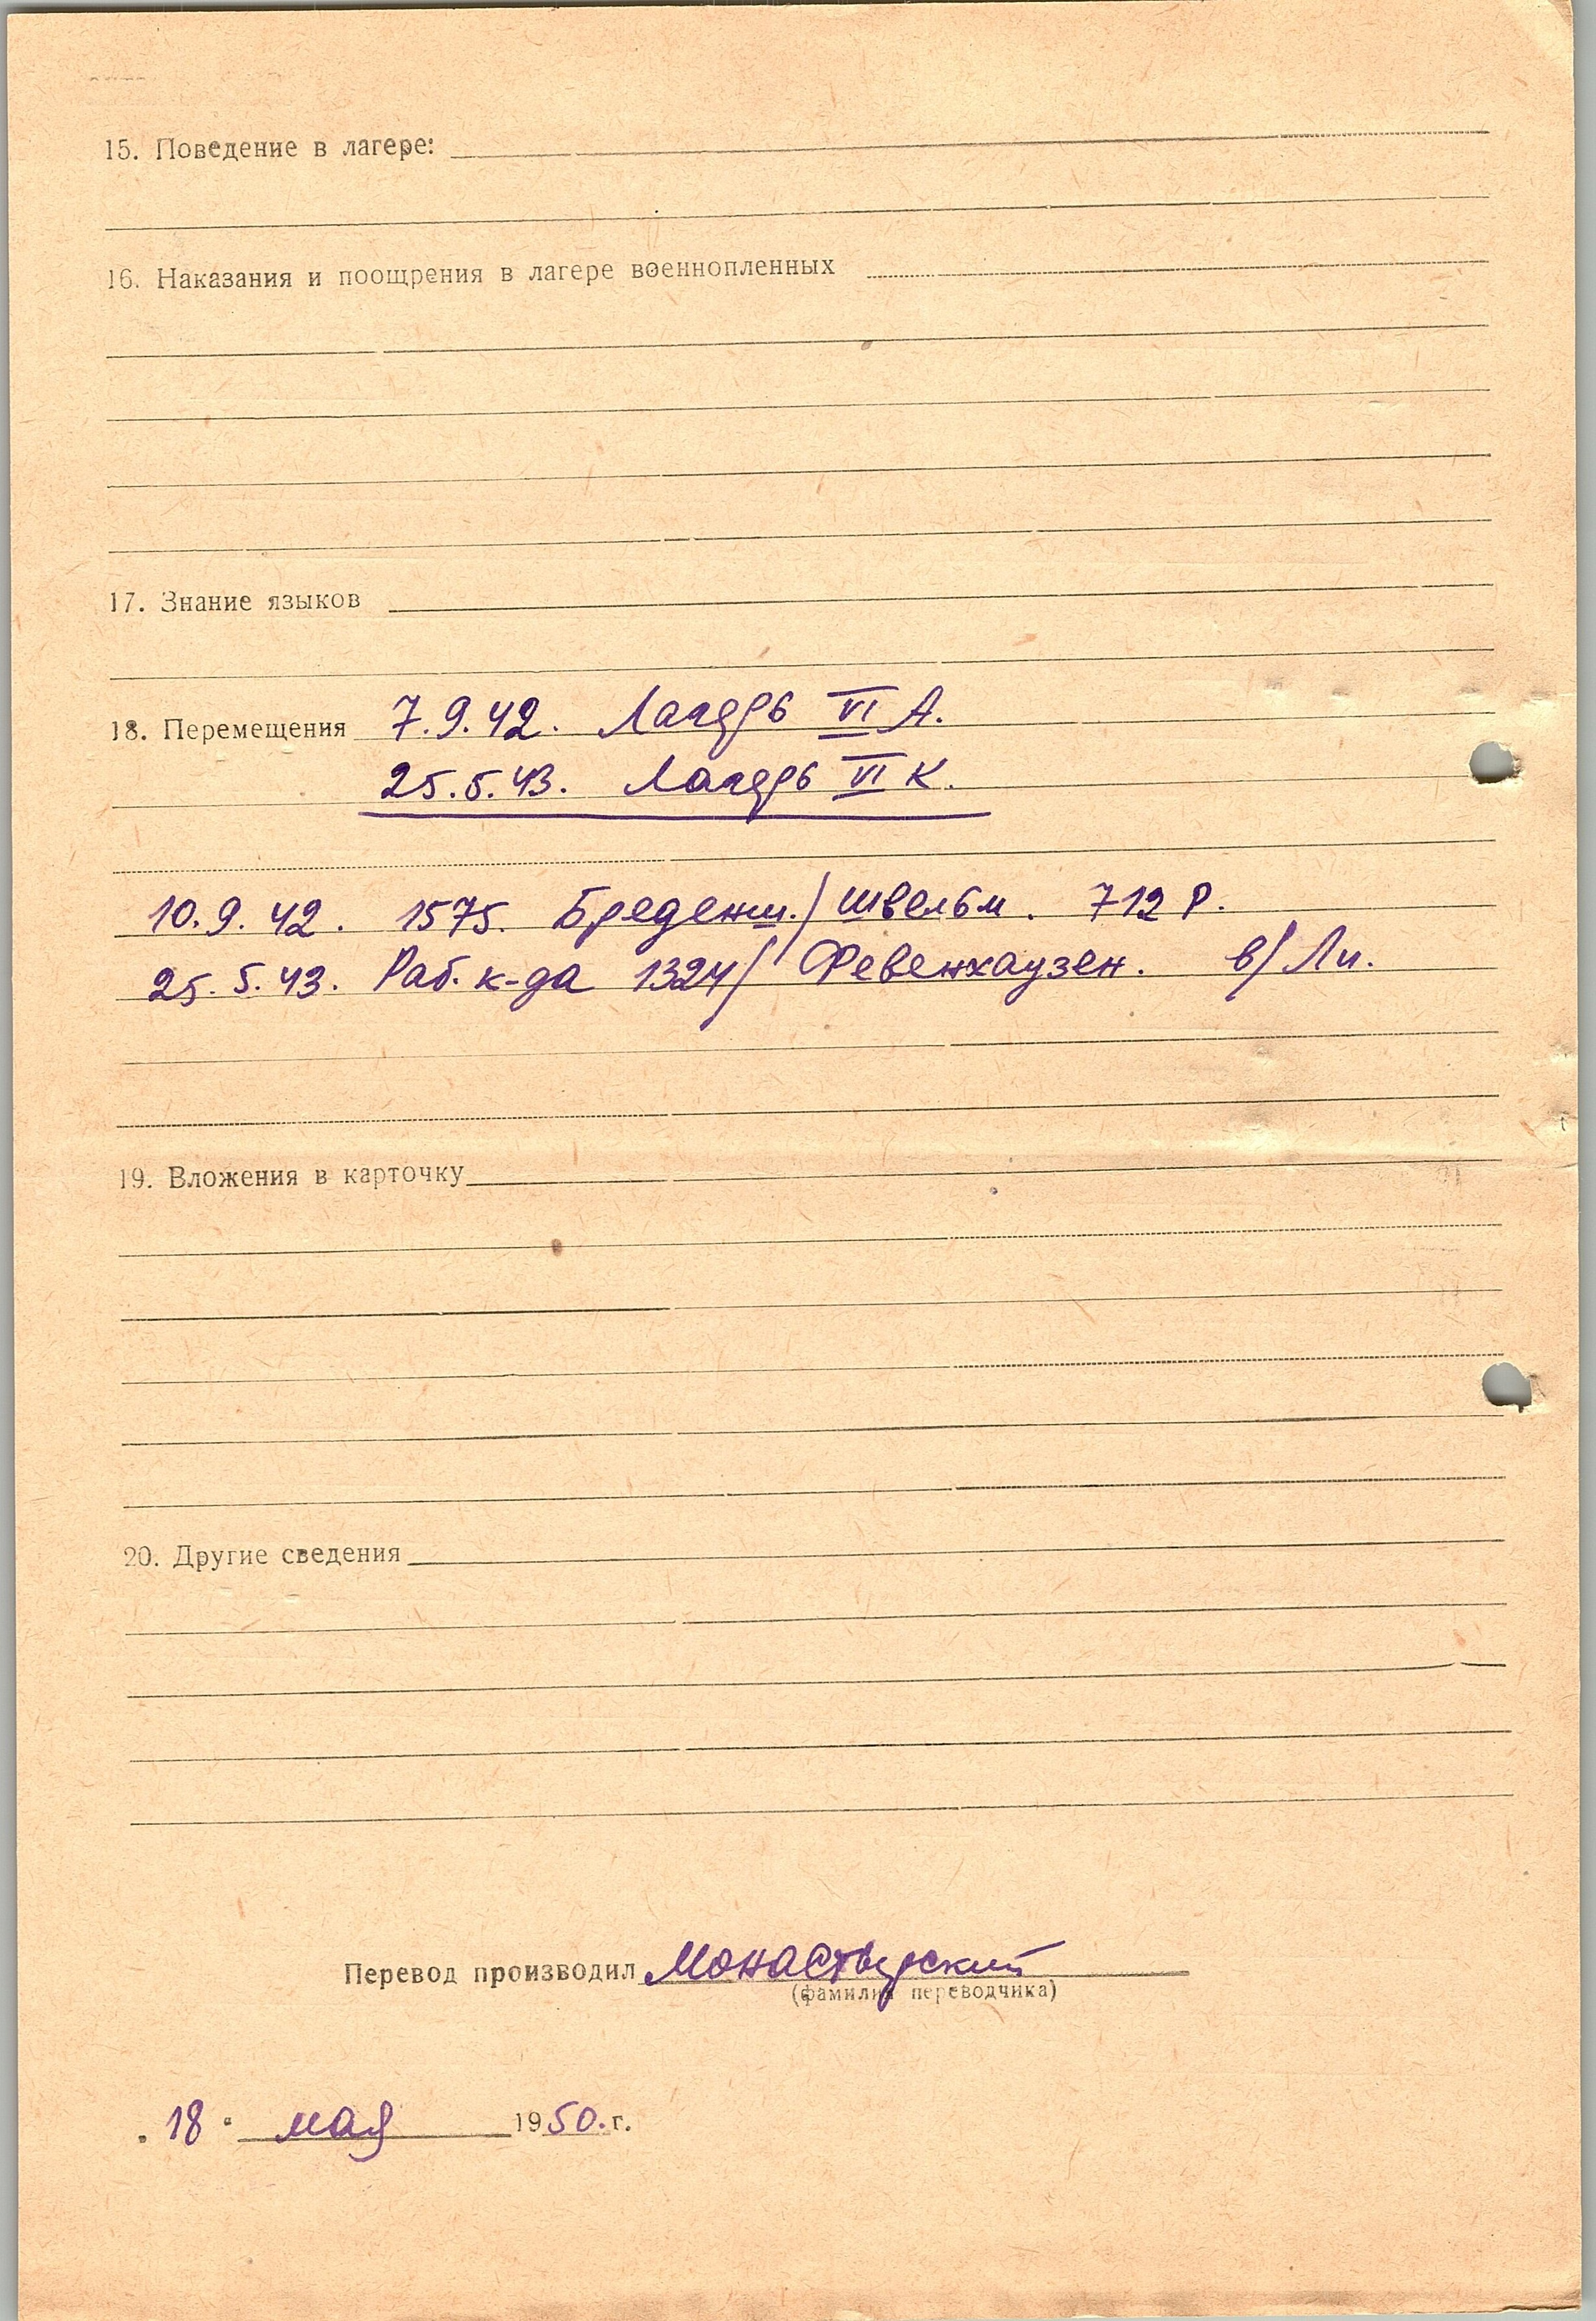 15. Поведение в лагере:
16. Наказания и поощрения в лагере военнопленных
17. Знание языков
18. Перемещения 7.9.42. Лагерь VI А.
25.5.43. Лагерь VI К.
10.9.42. 1575. Бреденш./Швельм. 712 Р.
25.5.43. Раб. к-да 1324/ Февенхаузен. в/Ли.
19. Вложения в карточку
20. Другие сведения
Перевод производил Монастырский
(фамилия переводчика)
„18“ мая 1950.г.